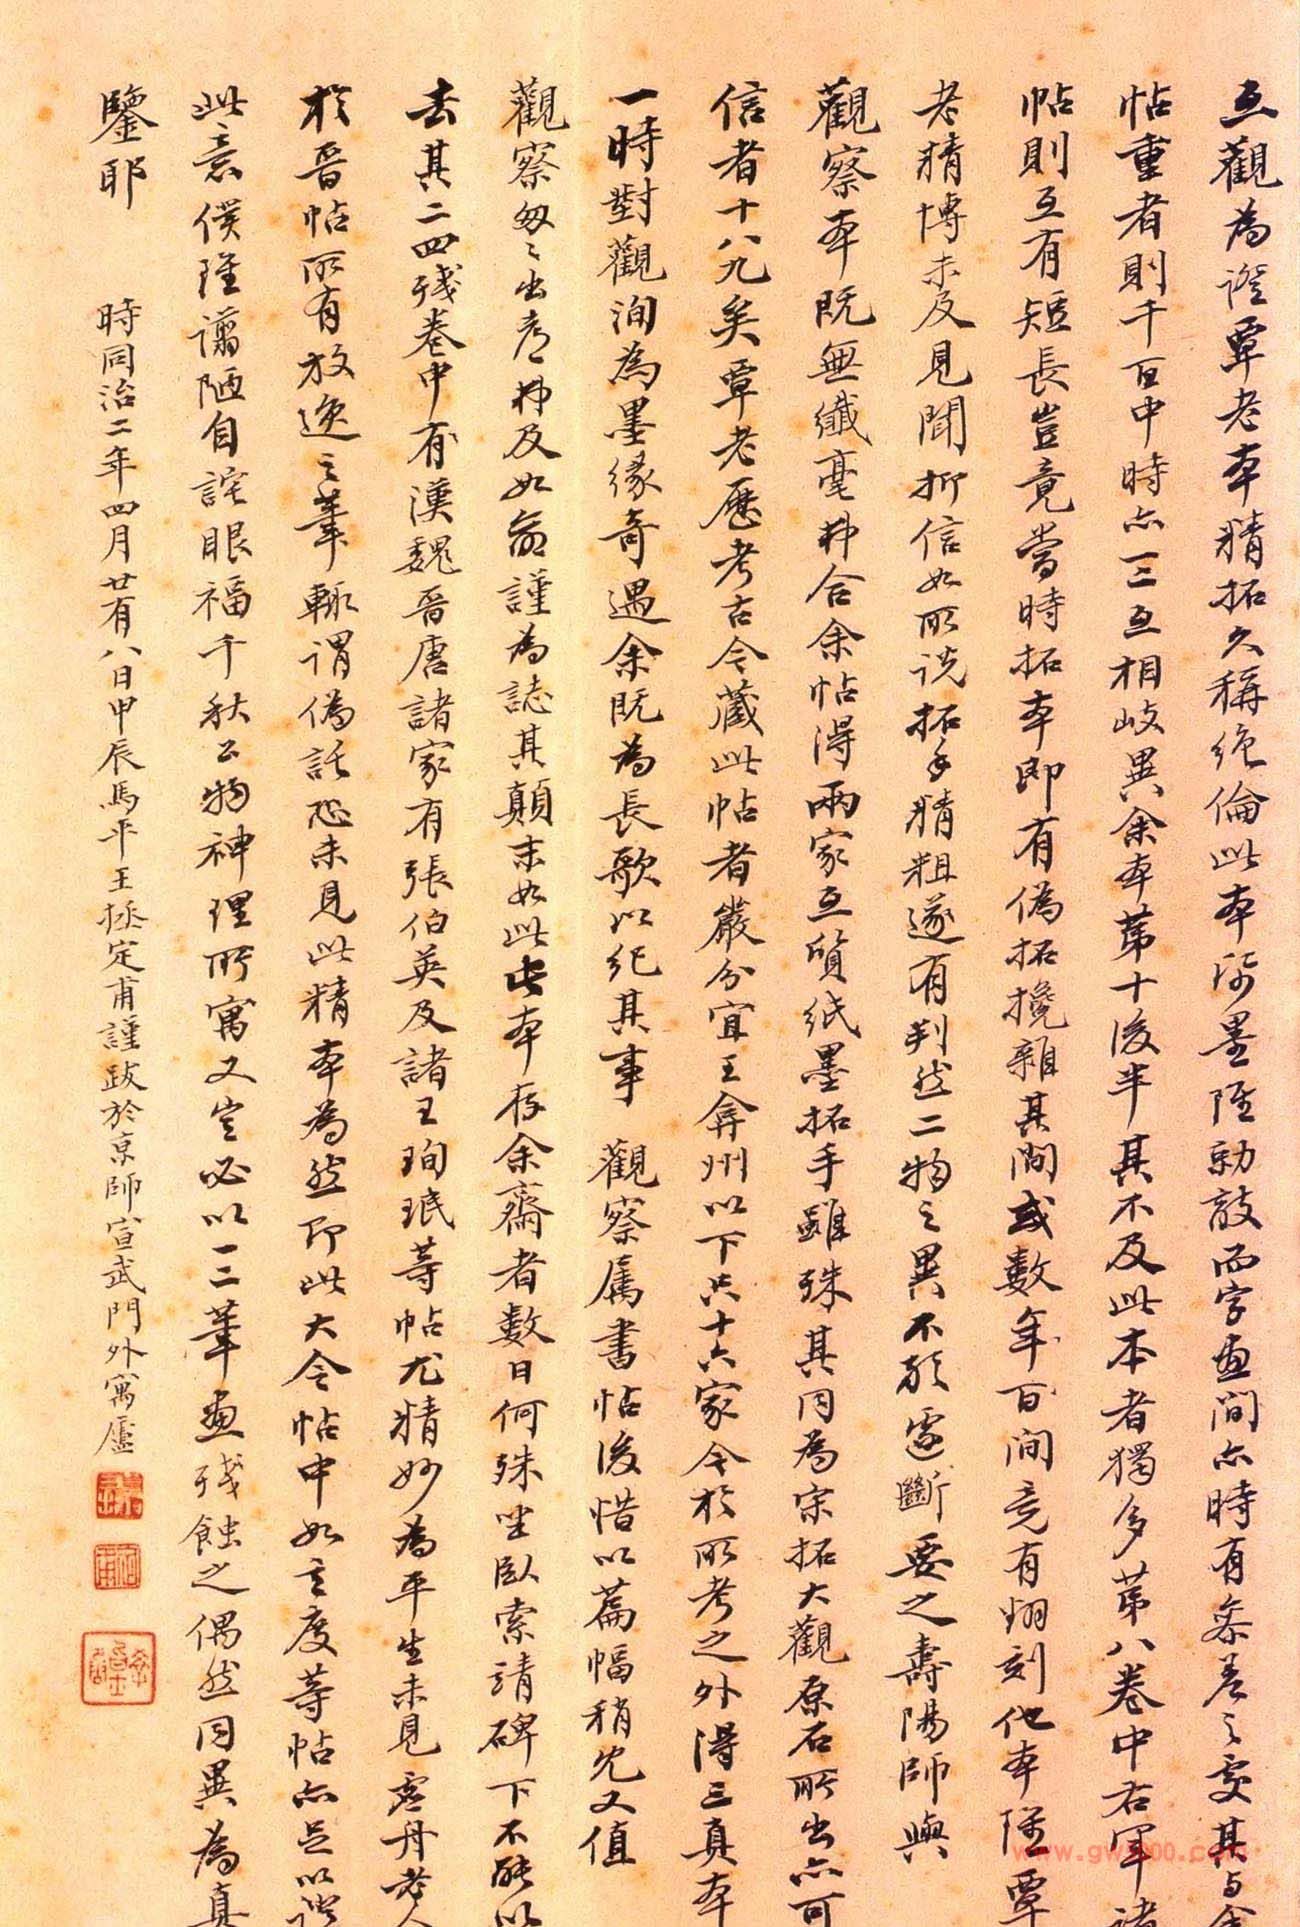 互觀為證覃老本精拓久稱絕倫此本紙墨雖勍敵而字畫間亦時有參差之處其与余
帖重者則千百中時亦一二互相岐異余本第十後半其不及此本者獨多第八卷中右軍諸
帖則互有短長豈竟當時拓本即有偽拓攙雜其間或數年百間竟有翻刻他本隨覃
老精博未及見聞抑信如所説拓手精粗遂有判然二物之異不敢遽斷要之壽陽師與
觀察本既無纖毫弗合余帖得兩家互質紙墨拓手雖殊其同為宋拓大觀原石所出亦可
信者十八九矣覃老歷考古今藏此帖者嚴分宜王弇州以下共十六家今於所考之外得三真本
一時對觀洵為墨緣奇遇余既為長歌以紀其事 觀察屬書帖後惜以篇幅稍先又值
觀察匆匆出都弗及如命謹為誌其顛末如此此本存余齋者數日何殊坐臥索靖碑下不能以
去其二四殘卷中有漢魏晉唐諸家有張伯英及諸王珣珉等帖尤精妙為平生未見虛舟老人
於晉帖所有放逸之筆輒謂偽託恐未見此精本為然即此大令帖中如玄度等帖亦足以證
此意僕雖譾陋自詫眼福千秋公物神理所寓又豈必以一二筆畫殘蝕之偶然同異為真
鑒耶
時同治二年四月廿有八日甲辰馬平王拯定甫謹跋於京師宣武門外寓廬
www.gw1000.com